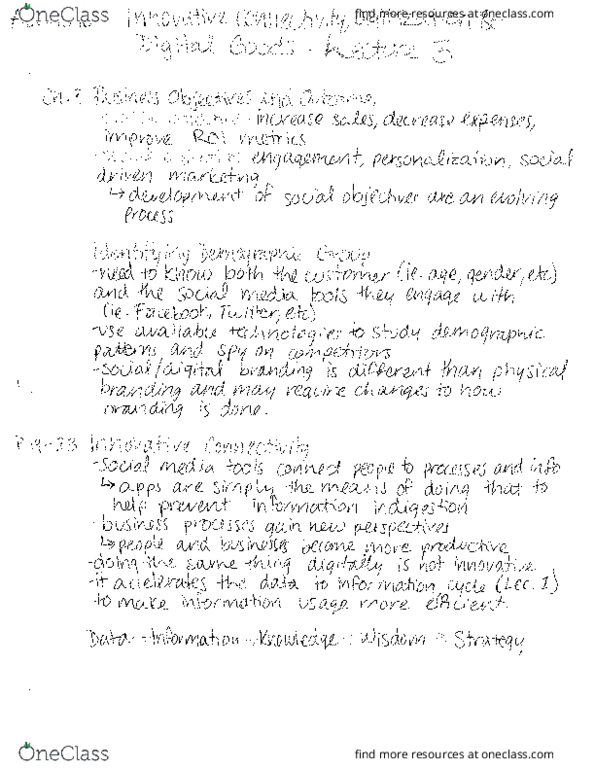 OneClass
find more resources at oneclass.com
Innovative Connectivity, &
Digital Goods - Lecture 3
Ch. Business Objectives and Outcome
increase sales, decrease expenses,
improve ROI metrics
engagement, personalization, social
driven marketing
↳ development of social objectives are an evolving
process
Identifying Demographic Group
-need to know both the customer (ie. age, gender, etc)
and the social media tools they engage with
(ie. Facebook, Twitter, etc)
-use available technologies to study demographic
patterns and spy on competitors
-social/digital branding is different than physical
branding and may require changes to how
branding is done.
Innovative Connectivity
-social media tools connect people to processes and info
↳ apps are simply the means of doing that to
help prevent information indigestion
-business processes gain new perspectives
↳people and businesses become more productive
-doing the same thing digitally is not innovative
-it acelerates the data to information cycle (Lec. 1)
-to make information usage more efficient.
Data - Information - Knowledge - Wisdom - Strategy
OneClass
find more resources at oneclass.com